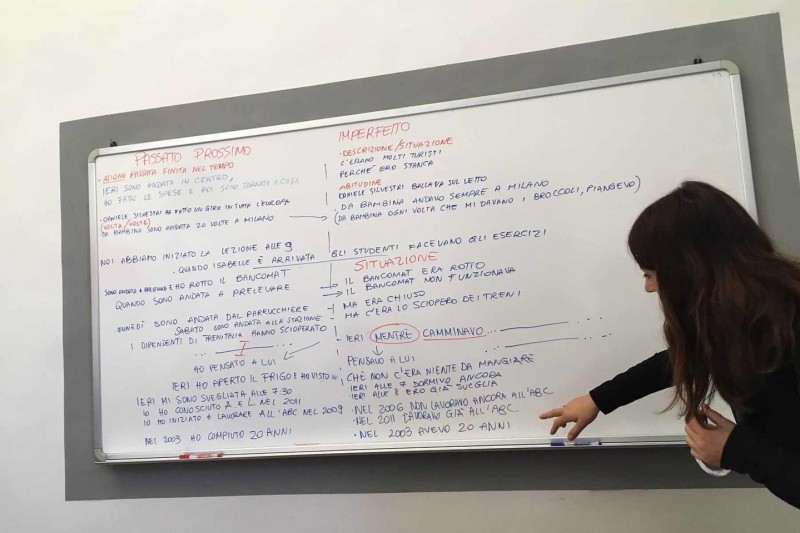 PASSATO PROSSIMO
• AZIONE PASSATA FINITA NEL TEMPO
IERI SONO ANDATA IN CENTRO,
HO FATTO LE SPESE E POI SONO TORNATA A CASA
• DANIELE SILVESTRI HA FATTO UN GIRO IN TUTTA L'EUROPA
(VOLTA/VOLTE)
DA BAMBINA SONO ANDATA 20 VOLTE A MILANO
NOI ABBIAMO INIZIATO LA LEZIONE ALLE 9
• QUANDO ISABELLE È ARRIVATA
SONO ANDATA A PRELEVARE E HO ROTTO IL BANCOMAT
QUANDO SONO ANDATA A PRELEVARE
LUNEDÌ SONO ANDATA DAL PARRUCCHIERE
SABATO SONO ANDATA ALLA STAZIONE
I DIPENDENTI DI TRENITALIA HANNO SCIOPERATO
HO PENSATO A LUI
IERI HO APERTO IL FRIGO E HO VISTO
IERI MI SONO SVEGLIATA ALLE 7:30
IO HO CONOSCIUTO A. E L. NEL 2011
IO HO INIZIATO A LAVORARE ALL'ABC NEL 2009
NEL 2003 HO COMPIUTO 20 ANNI
IMPERFETTO
• DESCRIZIONE/SITUAZIONE
C'ERANO MOLTI TURISTI
PERCHÉ ERO STANCA
ABITUDINE
DANIELE SILVESTRI BALLAVA SUL LETTO
• DA BAMBINA ANDAVO SEMPRE A MILANO
(DA BAMBINA OGNI VOLTA CHE MI DAVANO I BROCCOLI, PIANGEVO)
GLI STUDENTI FACEVANO GLI ESERCIZI
SITUAZIONE
IL BANCOMAT ERA ROTTO
IL BANCOMAT NON FUNZIONAVA
MA ERA CHIUSO
MA C'ERA LO SCIOPERO DEI TRENI
IERI MENTRE CAMMINAVO
PENSAVO A LUI
CHE NON C'ERA NIENTE DA MANGIARE
IERI ALLE 7 DORMIVO ANCORA
IERI ALLE 8 ERO GIÀ SVEGLIA
• NEL 2006 NON LAVORAVO ANCORA ALL'ABC
• NEL 2011 LAVORAVO GIÀ ALL'ABC
• NEL 2003 AVEVO 20 ANNI